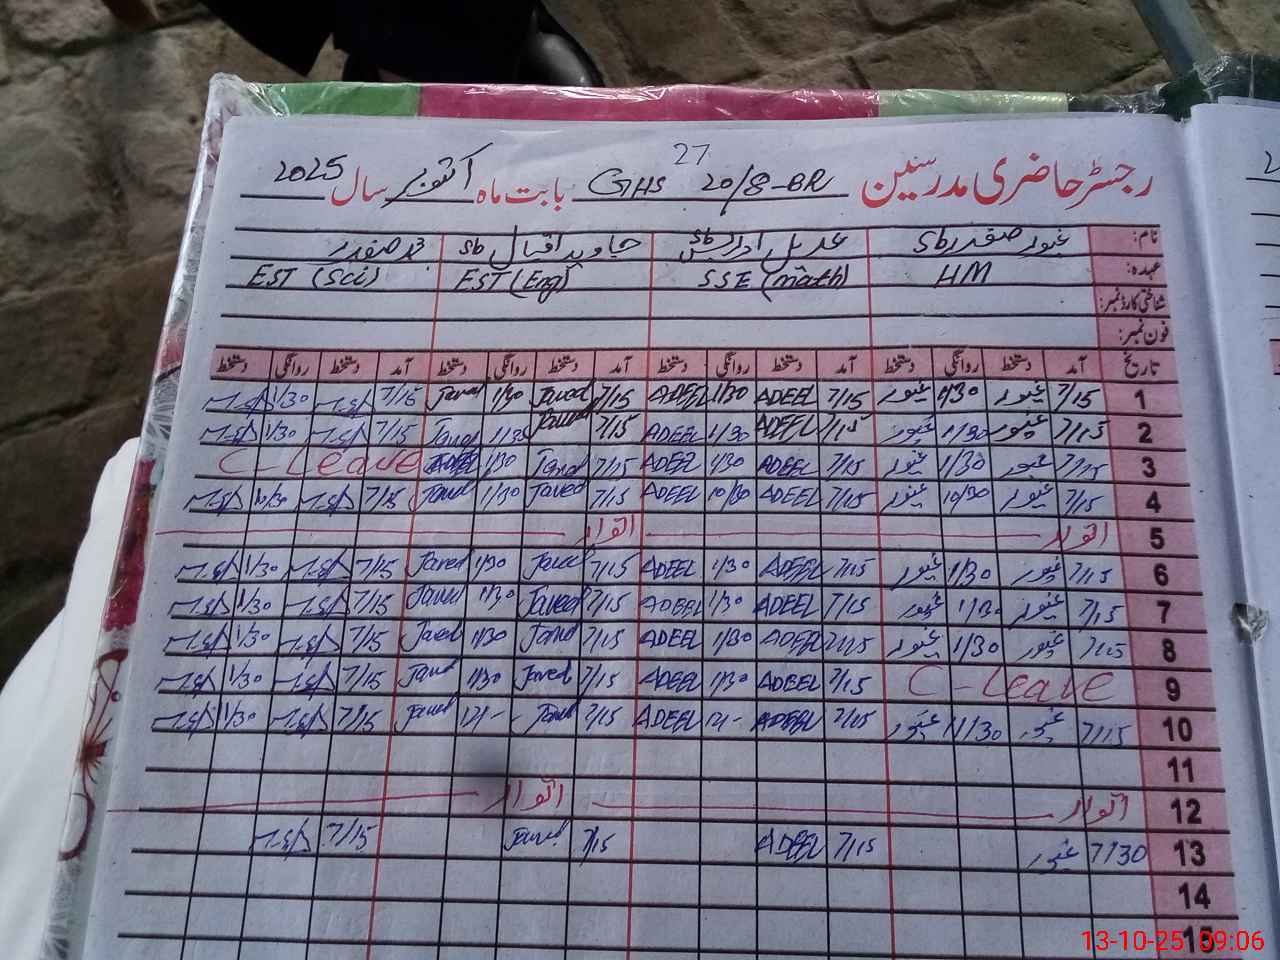 27
رجسٹر حاضری مدرسین GHS 20/8-BR بابت ماہ اکتوبر سال 2025
نام: غیور صفدر Sb عدیل ادریس Sb جاوید اقبال Sb صفدر
عہدہ: HM SSE (math) EST (Eng) EST (Sci)
شناختی کارڈ نمبر:
فون نمبر:
تاریخ آمد دستخط روانگی دستخط آمد دستخط روانگی دستخط آمد دستخط روانگی دستخط آمد دستخط روانگی دستخط
1 7/15 غیور 1/30 غیور 7/15 ADEEL 1/30 ADEEL 7/15 Javed 1/30 Javed 7/15 1/30
2 7/15 غیور 1/30 غیور 7/15 ADEEL 1/30 ADEEL 7/15 Javed Javed 7/15 1/30
3 7/15 غیور 1/30 غیور 7/15 ADEEL 1/30 ADEEL 7/15 Javed 1/30 C-Leave
4 7/15 غیور 10/30 غیور 7/15 ADEEL 10/30 ADEEL 7/15 Javed 1/30 Javed 7/15 10/30
5 اتوار اتوار
6 7/15 غیور 1/30 غیور 7/15 ADEEL 1/30 ADEEL 7/15 Javed 1/30 Javed 7/15 1/30
7 7/15 غیور 1/30 غیور 7/15 ADEEL 1/30 ADEEL 7/15 Javed 1/30 Javed 7/15 1/30
8 7/15 غیور 1/30 غیور 7/15 ADEEL 1/30 ADEEL 7/15 Javed 1/30 Javed 7/15 1/30
9 C-Leave 7/15 ADEEL 1/30 ADEEL 7/15 Javed 1/30 Javed 7/15 1/30
10 7/15 غیور 11/30 غیور 7/15 ADEEL 12/- ADEEL 7/15 Javed 12/- Javed 7/15 1/30
11
12 اتوار اتوار
13 7/30 غیور 7/15 ADEEL 7/15 Javed 7/15
14
15
13-10-25 09:06